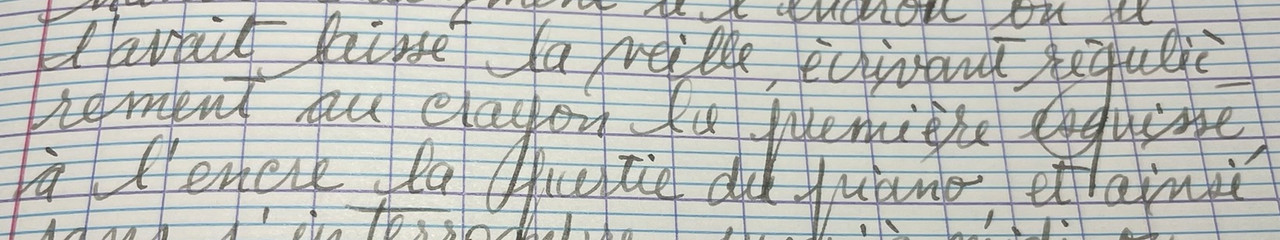 l'endroit où il
l'avait laissé la veille, écrivant réguliè
rement au crayon la première esquisse
à l'encre la partie du piano et ainsi